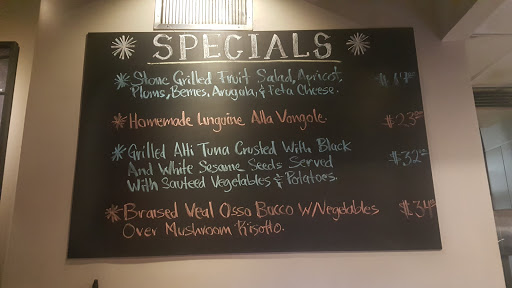 * SPECIALS *
* Stone Grilled Fruit Salad, Apricot,
Plums, Berries, Arugula, & Feta Cheese.
* Homemade Linguine Alla Vongole. $23
* Grilled Ahi Tuna Crusted With Black
And White Sesame Seeds Served $32
With Sauteed Vegetables & Potatoes.
* Braised Veal Osso Bucco W/Vegetables $34
Over Mushroom Risotto.